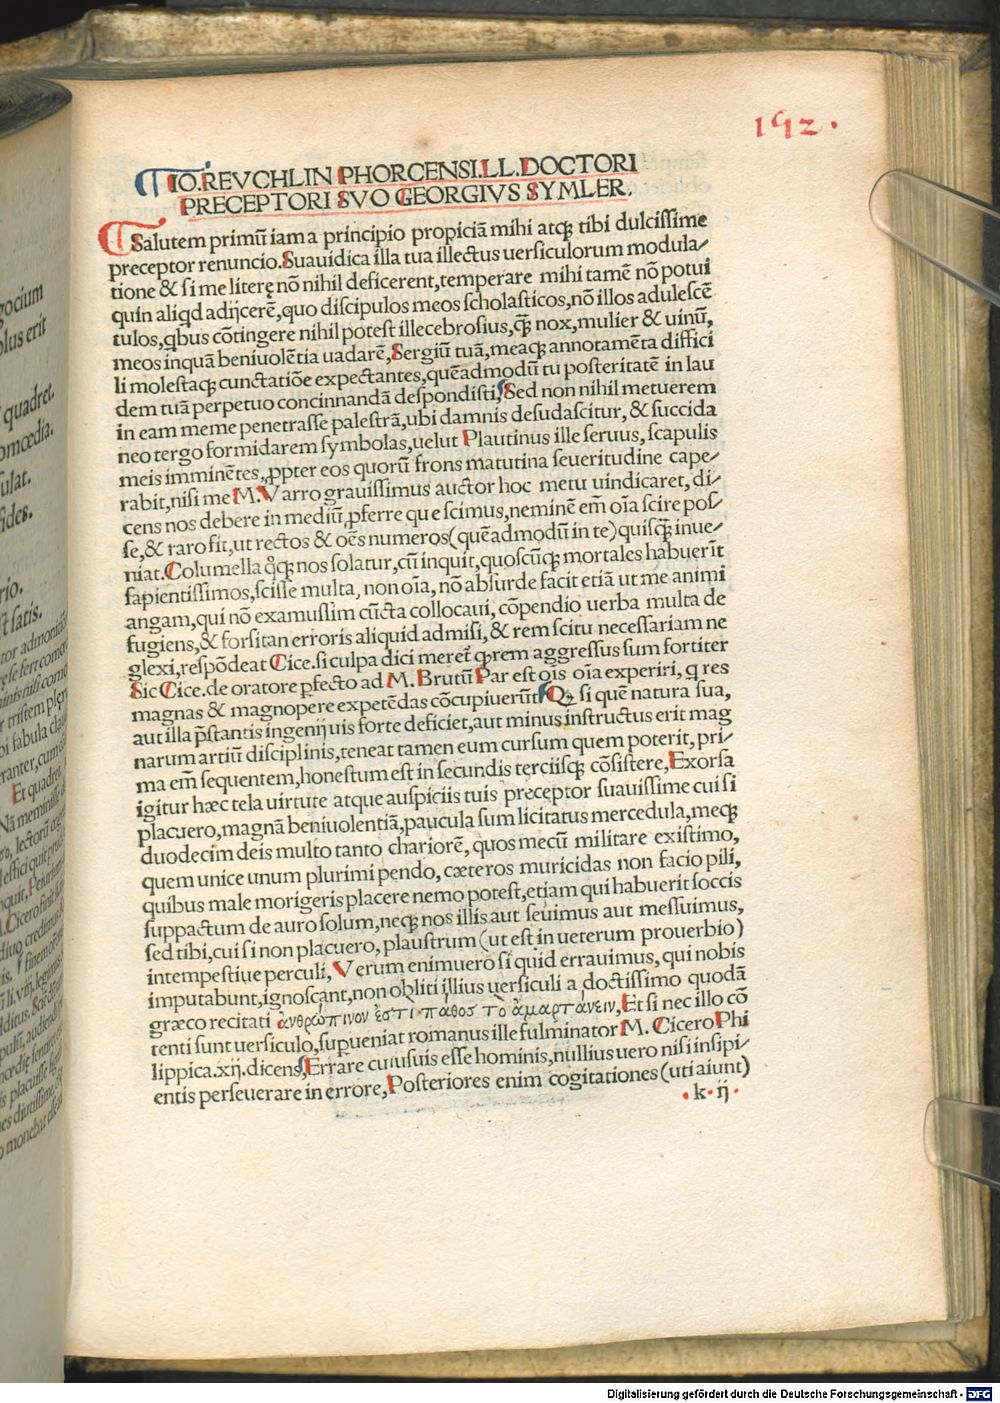 192.
IO. REVCHLIN PHORCENSI. LL. DOCTORI
PRECEPTORI SVO GEORGIVS SYMLER.
Salutem primũ iam a principio propiciã mihi atqꝫ tibi dulcissime
preceptor renuncio. Suauidica illa tua illectus uersiculorum modula⸗
tione & si me literę nõ nihil deficerent, temperare mihi tamẽ nõ potui
quin aliqd adijcerẽ, quo discipulos meos scholasticos, nõ illos adulescẽ
tulos, qbus cõtingere nihil potest illecebrosius, q̃ꝫ nox, mulier & uinũ,
meos inquã beniuolẽtia uadarẽ, Sergiũ tuã, meaqꝫ annotamẽta diffici
li molestaqꝫ cunctatiõe expectantes, quẽadmodũ tu posteritatẽ in lau
dem tuã perpetuo concinnandã despondisti, Sed non nihil metuerem
in eam meme penetrasse palestrã, ubi damnis desudascitur, & succida
neo tergo formidarem symbolas, uelut Plautinus ille seruus, scapulis
meis imminẽtes, ꝓpter eos quorũ frons matutina seueritudine cape⸗
rabit, nisi me M. Varro grauissimus auctor hoc metu uindicaret, di⸗
cens nos debere in mediũ, ꝓferre que scimus, neminẽ em̃ oĩa scire pos⸗
se, & raro fit, ut rectos & oẽs numeros (quẽadmodũ in te) quisq̃ꝫ inue⸗
niat. Columella q̊qꝫ nos solatur, cũ inquit, quoscũqꝫ mortales habuerĩt
sapientissimos, scisse multa, non oĩa, nõ absurde facit etiã ut me animi
angam, qui nõ examussim cũcta collocaui, cõpendio uerba multa de
fugiens, & forsitan erroris aliquid admisi, & rem scitu necessariam ne
glexi, respõdeat Cice. si culpa dici meret̃ q̃rem aggressus sum fortiter
Sic Cice. de oratore ꝑfecto ad M. Brutũ Par est oĩs oĩa experiri, q res
magnas & magnopere expetẽdas cõcupiuerũt, Qꝫ si quẽ natura sua,
aut illa p̃stantis ingenij uis forte deficiet, aut minus instructus erit mag
narum artiũ disciplinis, teneat tamen eum cursum quem poterit, pri⸗
ma em̃ sequentem, honestum est in secundis terciisqꝫ cõsistere, Exorsa
igitur hæc tela uirtute atque auspiciis tuis preceptor suauissime cui si
placuero, magnã beniuolentiã, paucula sum licitatus mercedula, meqꝫ
duodecim deis multo tanto chariorẽ, quos mecũ militare existimo,
quem unice unum plurimi pendo, cæteros muricidas non facio pili,
quibus male morigeris placere nemo potest, etiam qui habuerit soccis
suppactum de auro solum, neqꝫ nos illis aut seuimus aut messuimus,
sed tibi, cui si non placuero, plaustrum (ut est in ueterum prouerbio)
intempestiue perculi, Verum enimuero si quid errauimus, qui nobis
imputabunt, ignoscant, non obliti illius uersiculi a doctissimo quodã
græco recitati ἀνθρώπινον ἐστι παθος τὸ ἁμαρτάνειν, Et si nec illo cõ
tenti sunt uersiculo, supueniat romanus ille fulminator M. Cicero Phi
lippica. xij. dicens, Errare cuiusuis esse hominis, nullius uero nisi insipi⸗
entis perseuerare in errore, Posteriores enim cogitationes (uti aiunt)
k ij
Digitalisierung gefördert durch die Deutsche Forschungsgemeinschaft - DFG